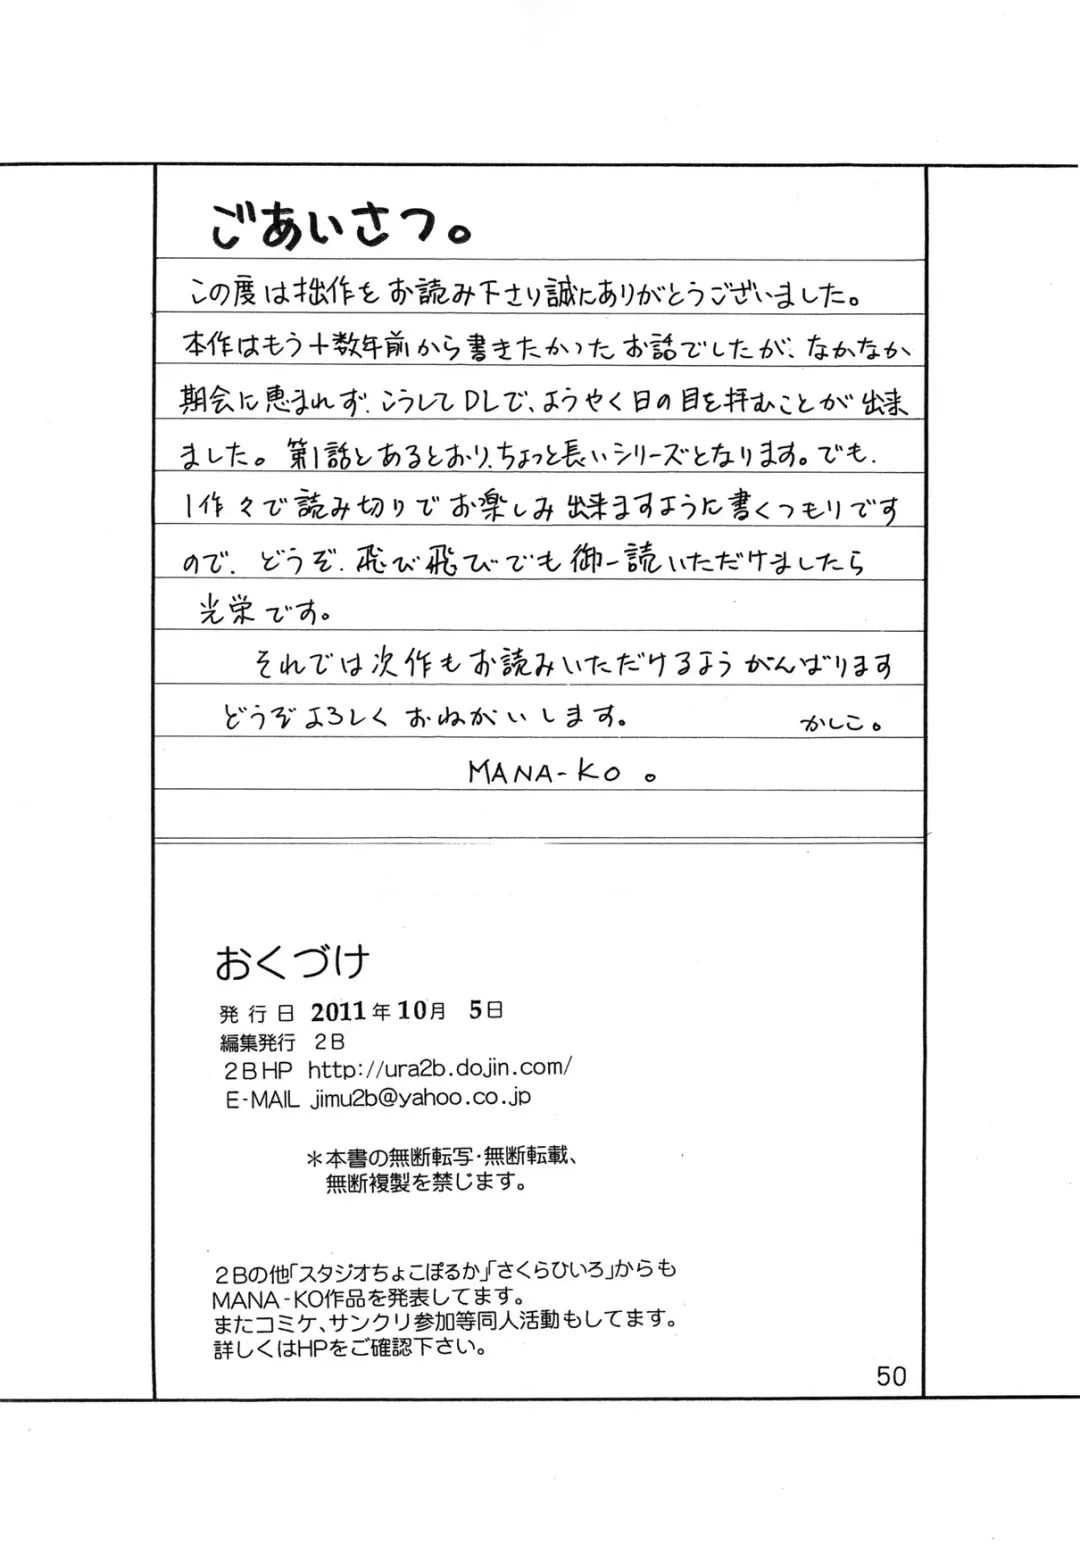 ごあいさつ。
この度は拙作をお読み下さり誠にありがとうございました。
本作はもう十数年前から書きたかったお話でしたが、なかなか
期会に恵まれず、こうしてDLで、ようやく日の目を拝むことが出来
ました。第1話とあるとおり、ちょっと長いシリーズとなります。でも、
1作々で読み切りでお楽しみ出来ますように書くつもりです
ので、どうぞ、飛び飛びでも御一読いただけましたら
光栄です。
それでは次作もお読みいただけるようがんばります
どうぞよろしくおねがいします。 かしこ。
MANA-KO。
おくづけ
発行日 2011年10月 5日
編集発行 2B
2BHP http://ura2b.dojin.com/
E-MAIL jimu2b@yahoo.co.jp
＊本書の無断転写・無断転載、
無断複製を禁じます。
2Bの他「スタジオちょこぽるか」「さくらひいろ」からも
MANA-KO作品を発表してます。
またコミケ、サンクリ参加等同人活動もしてます。
詳しくはHPをご確認下さい。
50